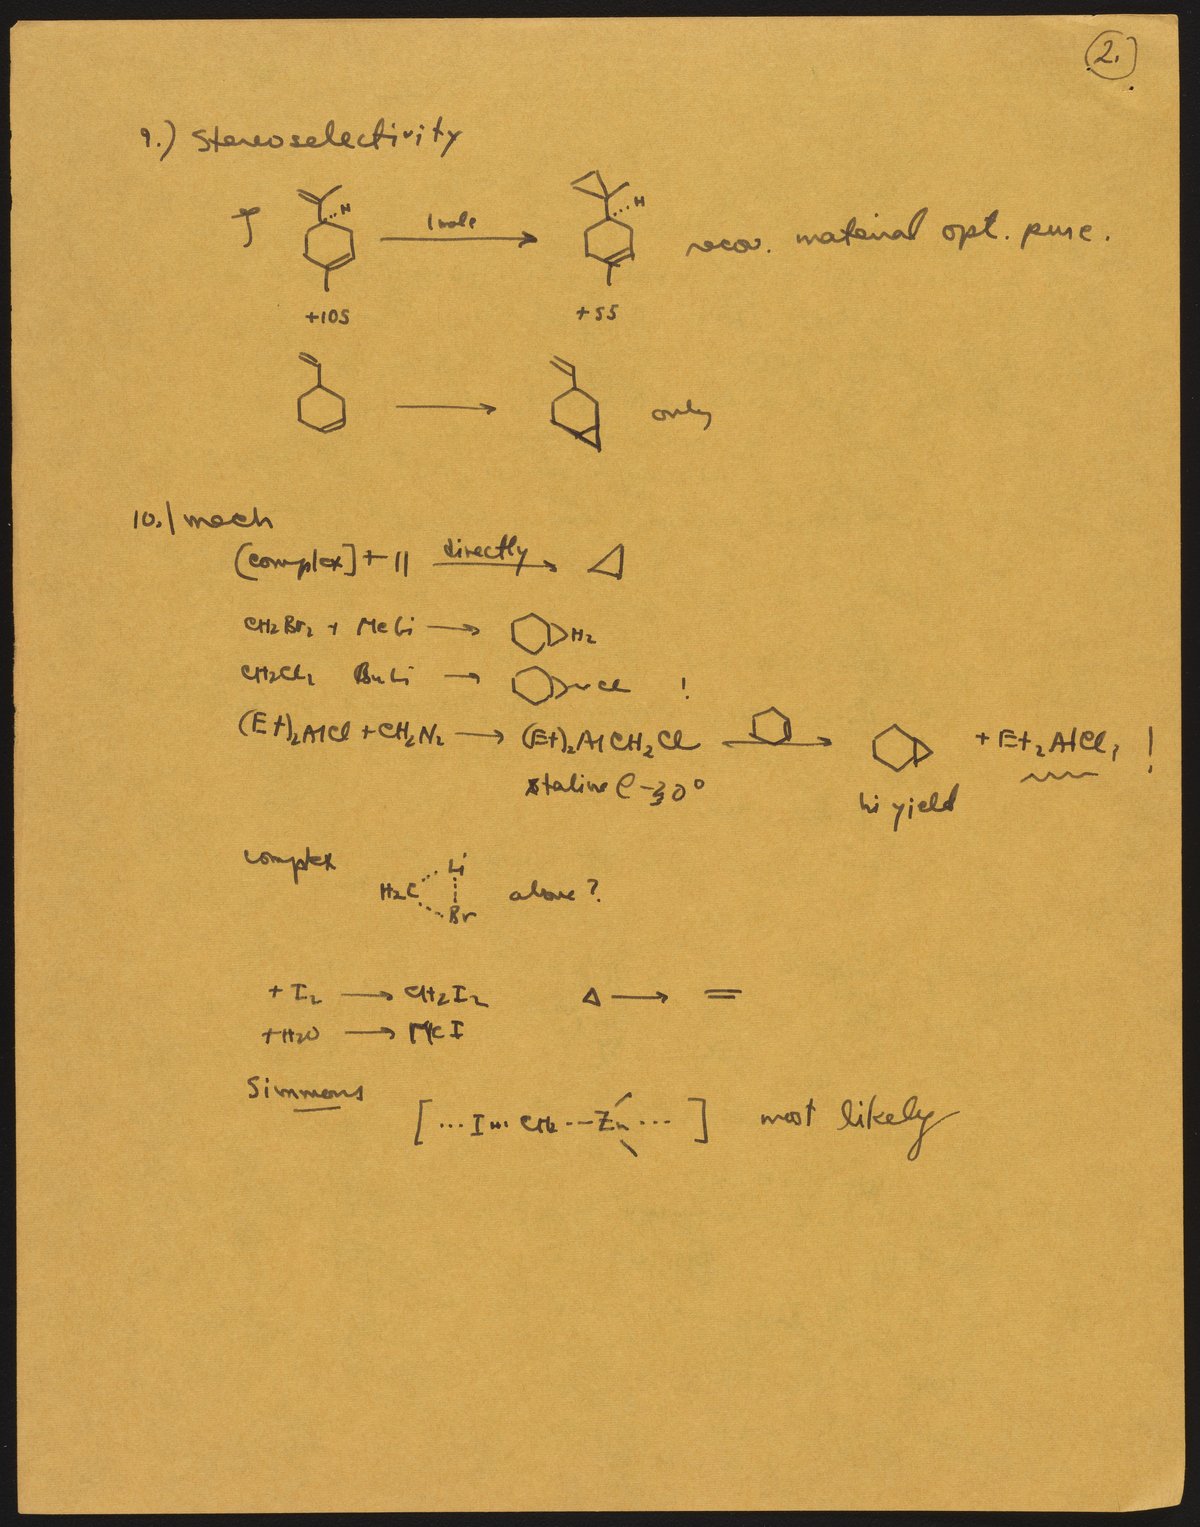 2.
9.) Stereoselectivity
H 1 mole H recov. material opt. pure.
+105 +55
only
10.) mech
[complex] + || directly → △
CH2Br2 + MeLi → H2
CH2Cl2 BuLi → Cl !
(Et)2AlCl + CH2N2 → (Et)2AlCH2Cl → + Et2AlCl, !
-30°
hi yield
complex
Li
H2C alone?
Br
+ I2 → CH2I2 △ → =
+ H2O → MeI
Simmons
[ ... I ... CH2 --- Zn ... ] most likely